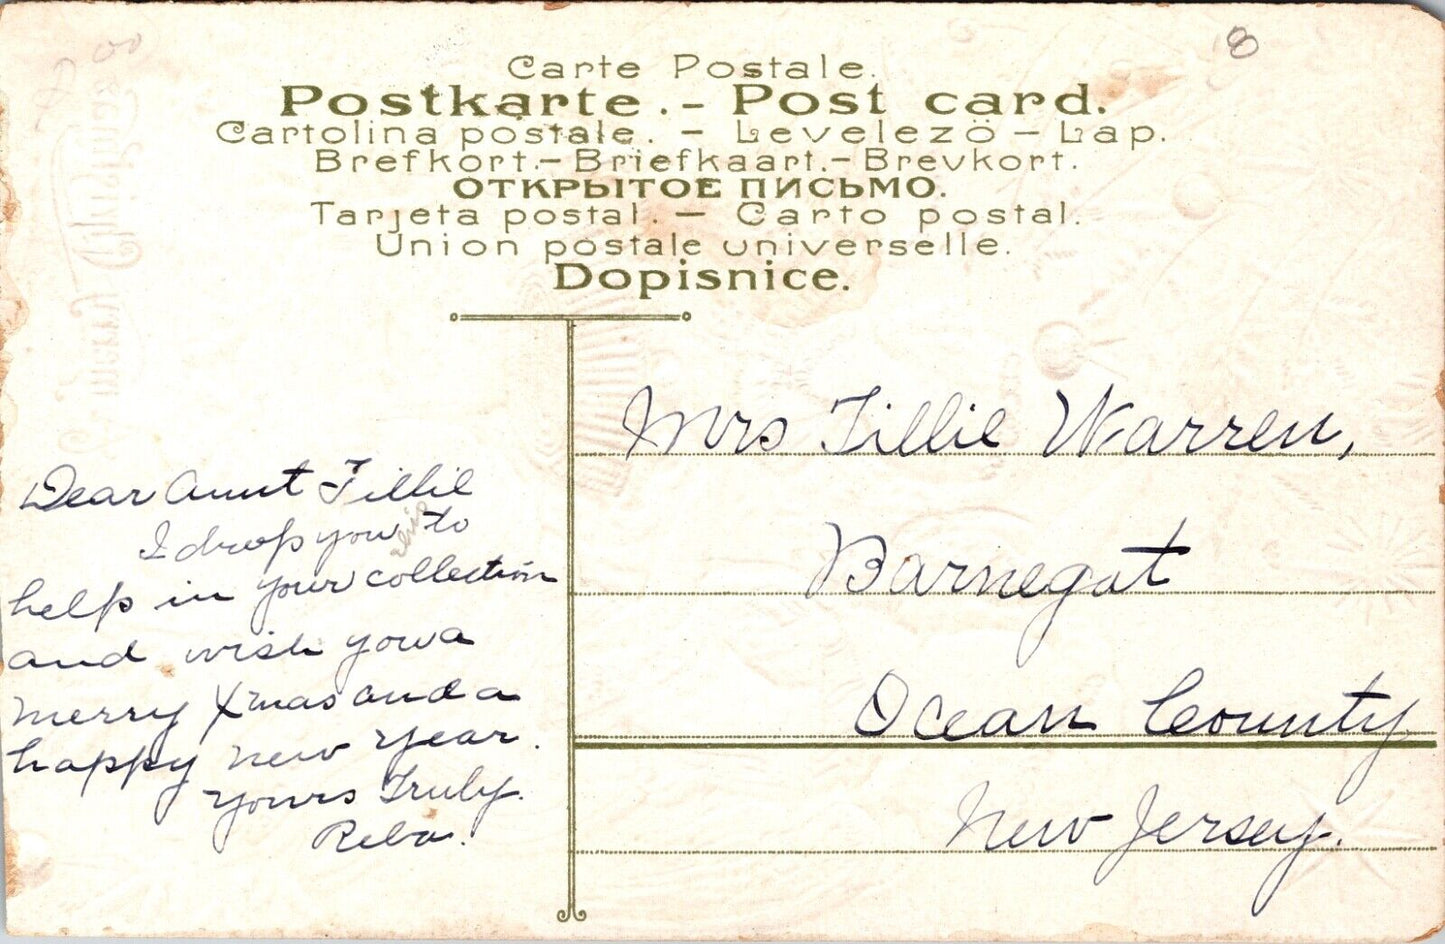 8
Carte Postale.
Postkarte.- Post card.
Cartolina postale. - Levelezö - Lap.
Brefkort.- Briefkaart.- Brevkort.
ОТКРЫТОЕ ПИСЬМО.
Tarjeta postal. - Carto postal.
Union postale universelle.
Dopisnice.
Dear Aunt Tillie
I drop you this to
help in your collection
and wish you a
merry Xmas and a
happy new year.
Yours Truly.
Reba.
Mrs Tillie Warren,
Barnegat
Ocean County
New Jersey.